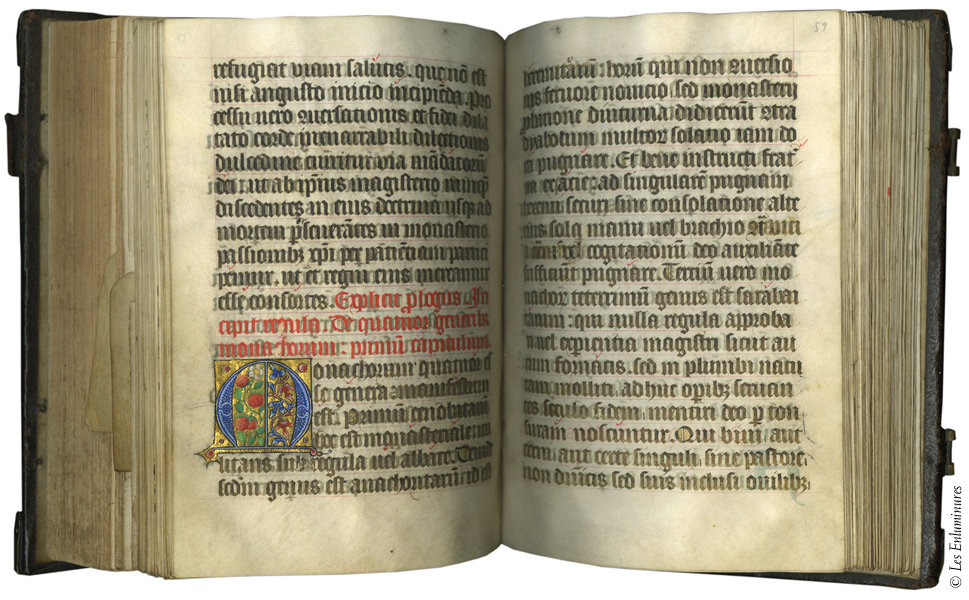 refugiat viam salutis. que nõ est
nisi angusto inicio incipiẽda. Pro
cessu vero ɔversationis et fidei dila
tato corde inenarrabili dilectionis
dulcedine curritur via mãdatorũ
dei: ut ab ipsius magisterio nunqȝ
discedentes in eius doctrina usqȝ ad
mortem pseverãtes in monasterio
passionibus xpi per paciẽciam partici
pemur. ut et regni eius mereamur
esse consortes. Explicit plogus. In
cipit regula. De quatuor generibȝ
monachorum: primũ capitulum.
Monachorum quatuor e
sse genera: manifestum
est. Primum cenobitarũ
hoc est monasteriale: mi
litans sub regula uel abbate. Deinde
secũdm genus est anachoritarũ: id est
59
heremitarũ: horũ qui non ɔuersio
nis feruore nouicio sed monasterij
pbatione diuturna didicerũt ɔtra
dyabolum multor solatio iam do
cti pugnare. Et bene instructi frat
na ex acie: ad singularẽ pugnam
heremi securi sine consolatione alte
rius sola manu uel brachio
cogitationũ deo auxiliãte
sufficiũt pugnare. Terciũ uero mo
nachor teterrimũ genus est sarabai
tarum: qui nulla regula approba
ti uel experientia magistri sicut au
rum fornacis. sed in plumbi natu
ram molliti, adhuc opibȝ seruan
tes seculo fidem, mentiri deo p ton
suram noscuntur. Qui bini aut
terni, aut certe singuli sine pastore.
non dñicis sed suis inclusi ouilibȝ
© Les Enluminures